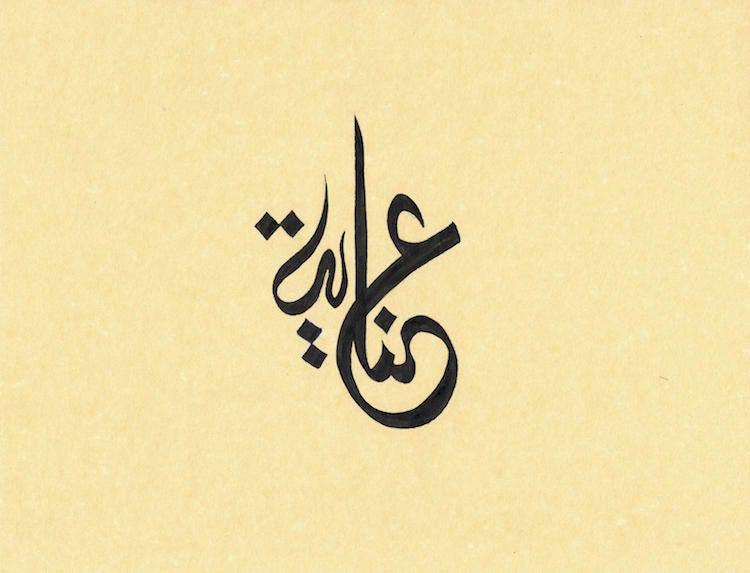 عناية